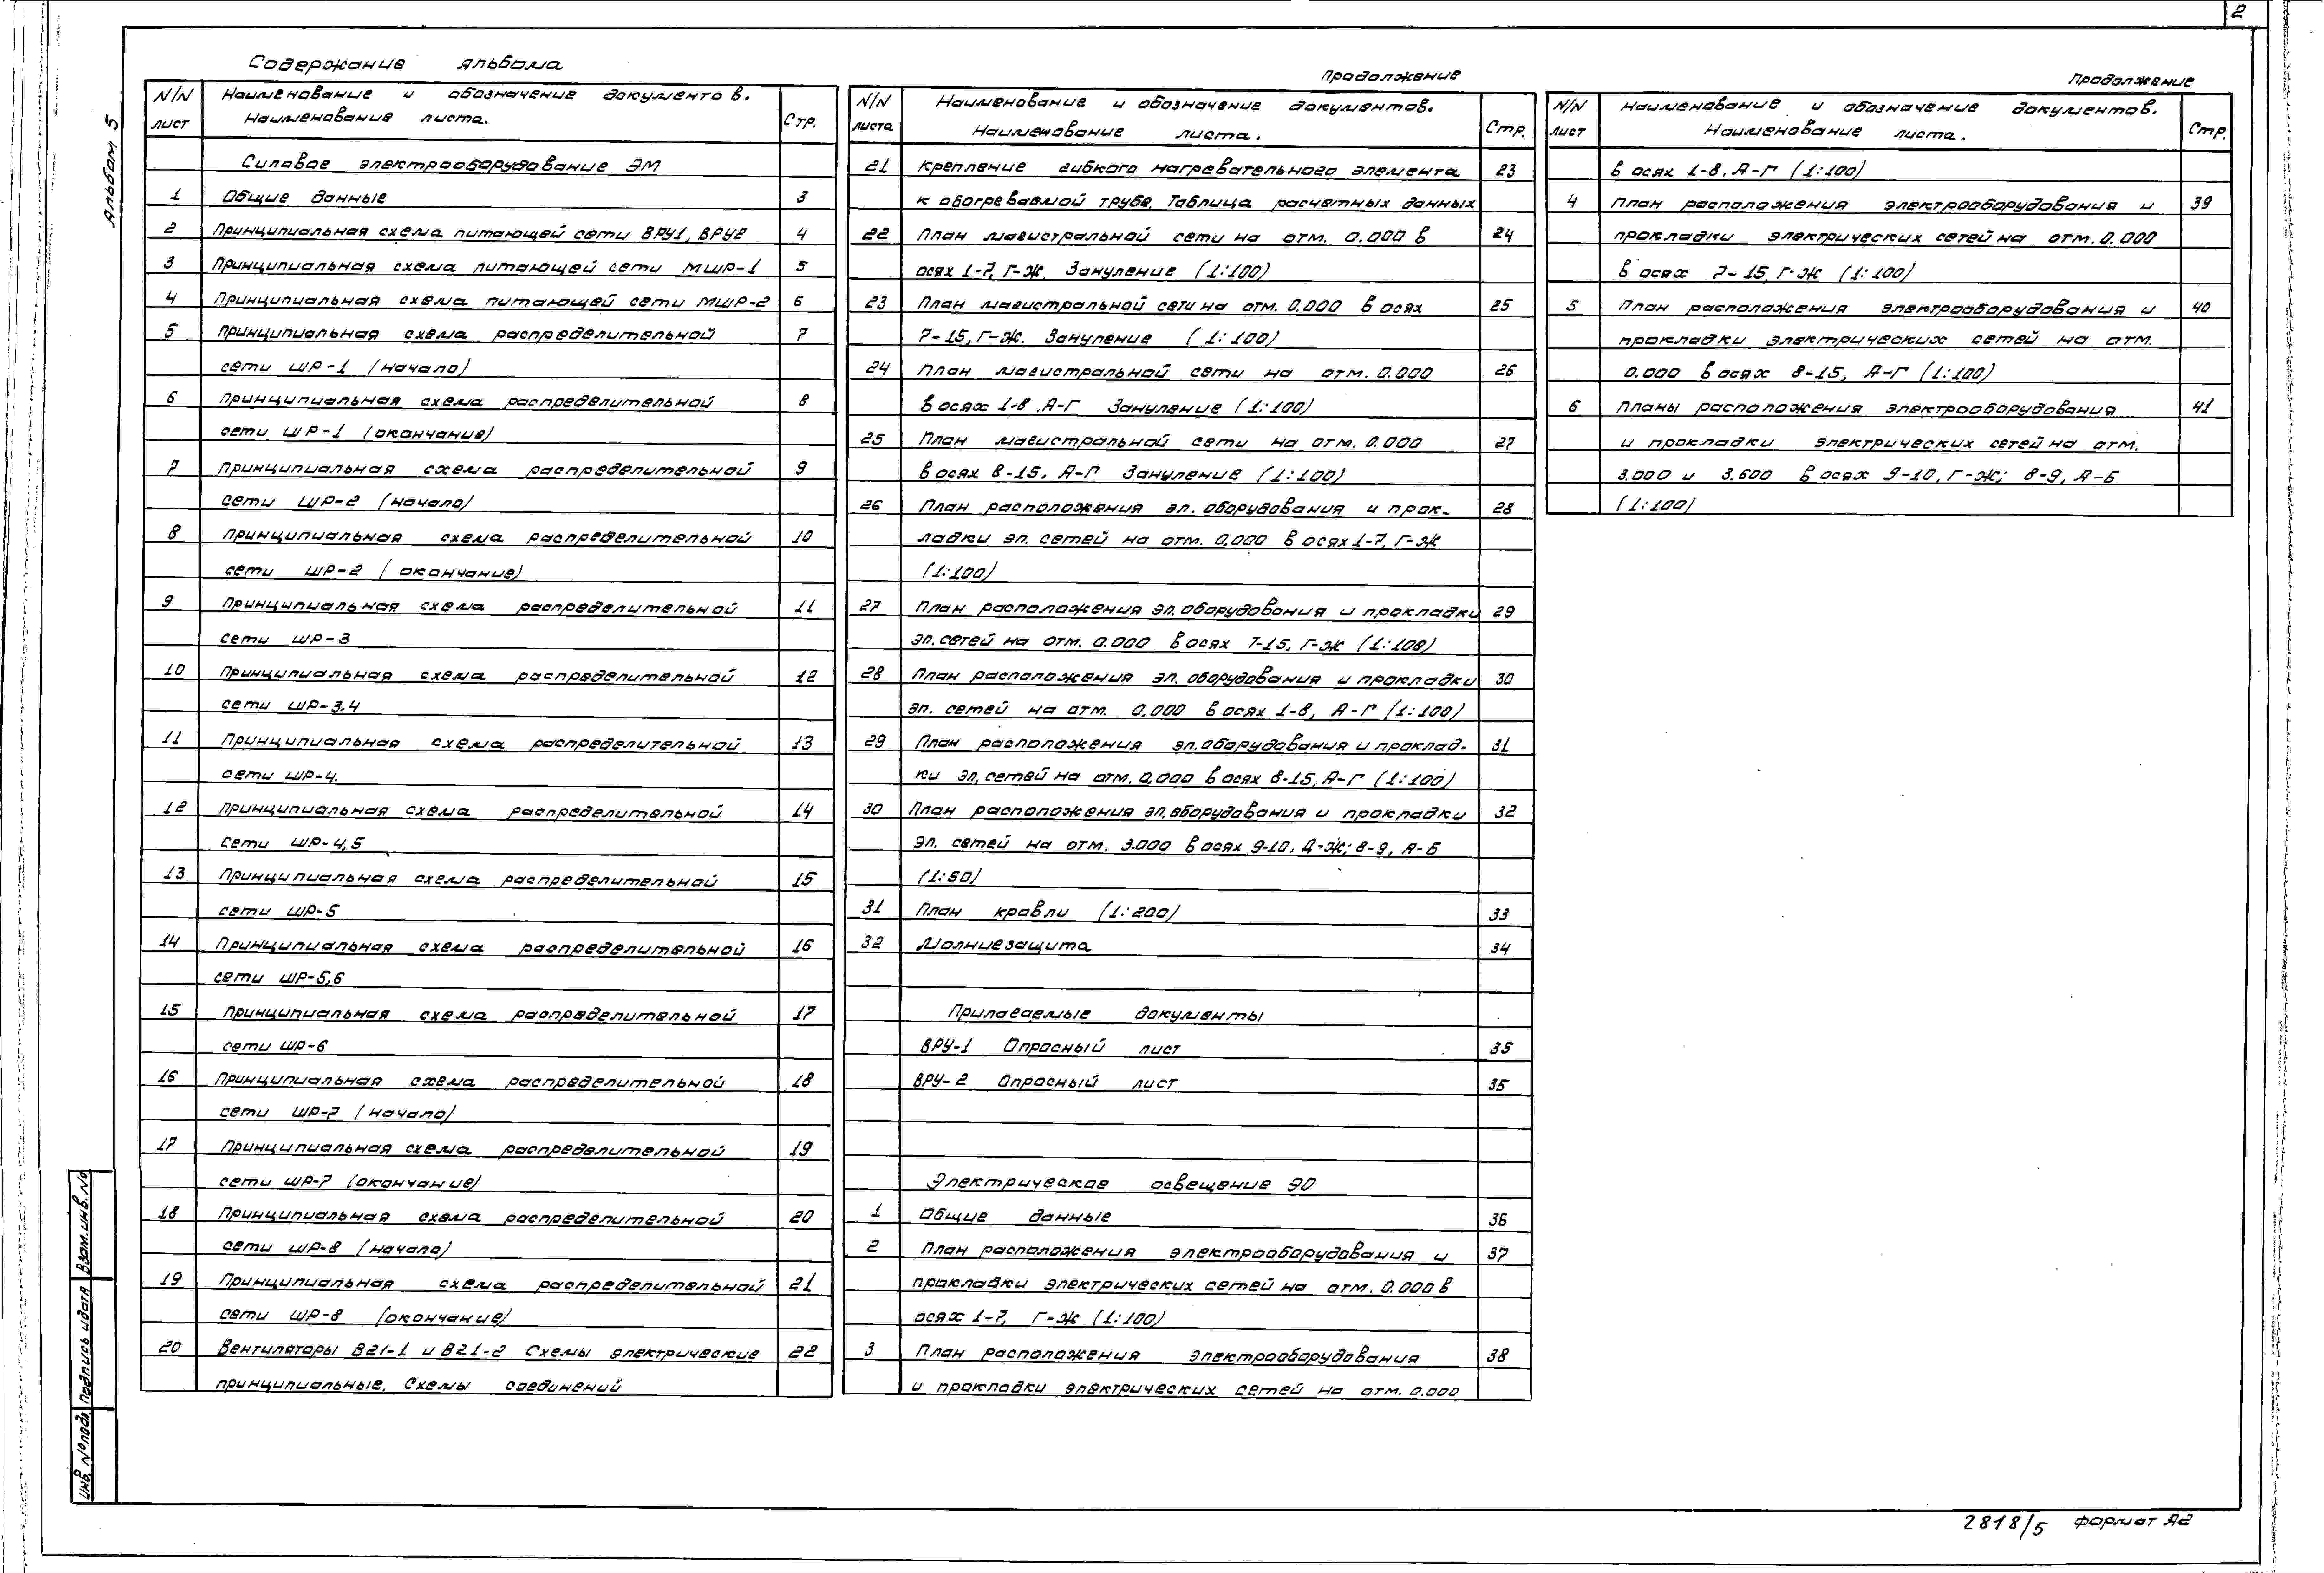 2
Альбом 5
Содержание альбома
N/N лист Наименование и обозначение документов. Наименование листа. Стр.
Силовое электрооборудование ЭМ
1 Общие данные 3
2 Принципиальная схема питающей сети ВРУ1, ВРУ2 4
3 Принципиальная схема питающей сети МШР-1 5
4 Принципиальная схема питающей сети МШР-2 6
5 Принципиальная схема распределительной 7
сети ШР-1 (начало)
6 Принципиальная схема распределительной 8
сети ШР-1 (окончание)
7 Принципиальная схема распределительной 9
сети ШР-2 (начало)
8 Принципиальная схема распределительной 10
сети ШР-2 (окончание)
9 Принципиальная схема распределительной 11
сети ШР-3
10 Принципиальная схема распределительной 12
сети ШР-3.4
11 Принципиальная схема распределительной 13
сети ШР-4.
12 Принципиальная схема распределительной 14
сети ШР-4,5
13 Принципиальная схема распределительной 15
сети ШР-5
14 Принципиальная схема распределительной 16
сети ШР-5,6
15 Принципиальная схема распределительной 17
сети ШР-6
16 Принципиальная схема распределительной 18
сети ШР-7 (начало)
17 Принципиальная схема распределительной 19
сети ШР-7 (окончание)
18 Принципиальная схема распределительной 20
сети ШР-8 (начало)
19 Принципиальная схема распределительной 21
сети ШР-8 (окончание)
20 Вентиляторы В21-1 и В21-2 Схемы электрические 22
принципиальные. Схемы соединений
Продолжение
N/N листа Наименование и обозначение документов. Наименование листа. Стр.
21 Крепление гибкого нагревательного элемента 23
к обогреваемой трубе. Таблица расчетных данных
22 План магистральной сети на отм. 0.000 в 24
осях 1-7, Г-Ж. Зануление (1:100)
23 План магистральной сети на отм. 0.000 в осях 25
7-15, Г-Ж. Зануление (1:100)
24 План магистральной сети на отм. 0.000 26
в осях 1-8, А-Г Зануление (1:100)
25 План магистральной сети на отм. 0.000 27
в осях 8-15, А-Г Зануление (1:100)
26 План расположения эл. оборудования и прок- 28
ладки эл. сетей на отм. 0,000 в осях 1-7, Г-Ж
(1:100)
27 План расположения эл. оборудования и прокладки 29
эл. сетей на отм. 0.000 в осях 7-15, Г-Ж (1:100)
28 План расположения эл. оборудования и прокладки 30
эл. сетей на отм. 0,000 в осях 1-8, А-Г (1:100)
29 План расположения эл. оборудования и проклад- 31
ки эл. сетей на отм. 0,000 в осях 8-15, А-Г (1:100)
30 План расположения эл. оборудования и прокладки 32
эл. сетей на отм. 3.000 в осях 9-10, Д-Ж; 8-9, А-Б
(1:50)
31 План кровли (1:200) 33
32 Молниезащита 34
Прилагаемые документы
ВРУ-1 Опросный лист 35
ВРУ-2 Опросный лист 35
Электрическое освещение ЭО
1 Общие данные 36
2 План расположения электрооборудования и 37
прокладки электрических сетей на отм. 0.000 в
осях 1-7, Г-Ж (1:100)
3 План расположения электрооборудования 38
и прокладки электрических сетей на отм. 0.000
Продолжение
N/N лист Наименование и обозначение документов. Наименование листа. Стр.
в осях 1-8, А-Г (1:100)
4 План расположения электрооборудования и 39
прокладки электрических сетей на отм. 0.000
в осях 7-15, Г-Ж (1:100)
5 План расположения электрооборудования и 40
прокладки электрических сетей на отм.
0.000 в осях 8-15, А-Г (1:100)
6 Планы расположения электрооборудования 41
и прокладки электрических сетей на отм.
3.000 и 3.600 в осях 9-10, Г-Ж; 8-9, А-Б
(1:100)
Инв. N подл. Подпись и дата Взам. инв. No
2818/5 формат А2